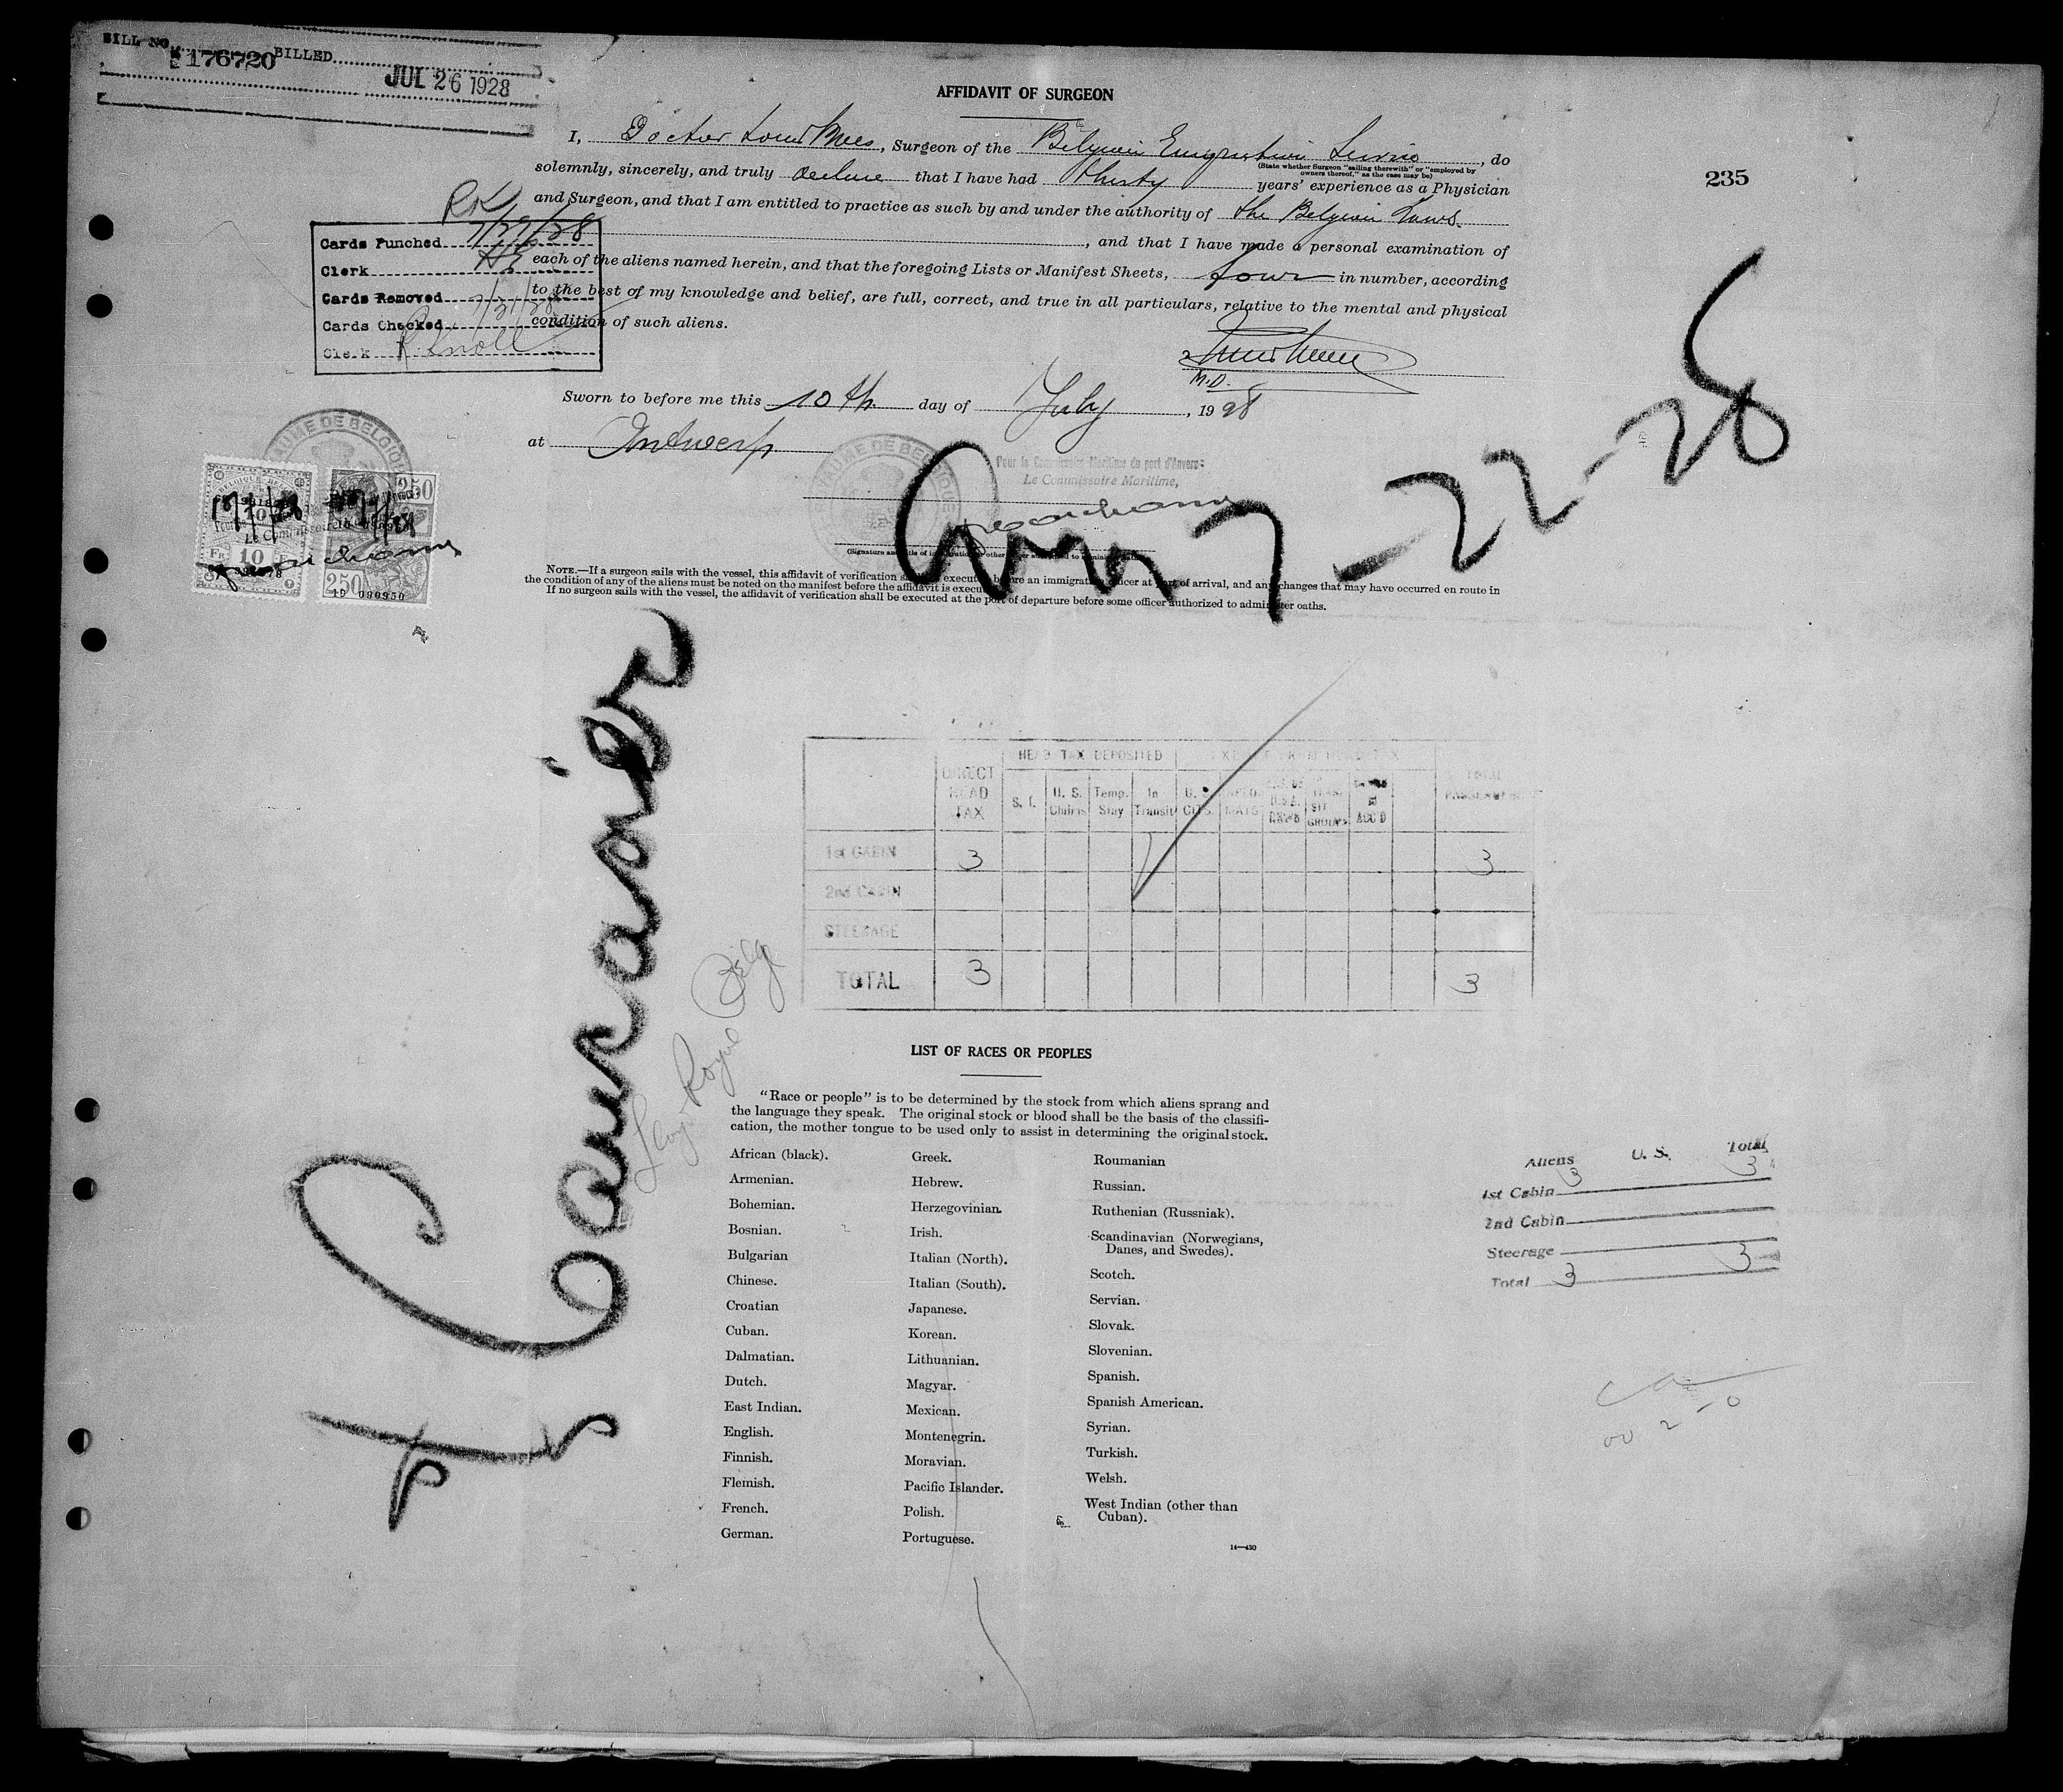 BILL NO. 176720 BILLED
JUL 26 1928
AFFIDAVIT OF SURGEON
235
I, Doctor Louis Mees, Surgeon of the Belgian Emigration Service, do
(State whether Surgeon "sailing therewith" or "employed by
owners thereof," as the case may be)
solemnly, sincerely, and truly declare that I have had thirty years' experience as a Physician
and Surgeon, and that I am entitled to practice as such by and under the authority of the Belgian Laws.
, and that I have made a personal examination of
each of the aliens named herein, and that the foregoing Lists or Manifest Sheets, four in number, according
to the best of my knowledge and belief, are full, correct, and true in all particulars, relative to the mental and physical
condition of such aliens.
RK
Cards Punched 7/29/28
Clerk
Cards Removed 7/31/28
Cards Checked
Clerk R. Knoll
M.D.
Sworn to before me this 10th day of July, 1928
at Antwerp
Pour le Commissaire Maritime du port d'Anvers:
Le Commissaire Maritime,
ROYAUME DE BELGIQUE
10
FR 10 Fr
250
250
1D 090950
Arr 7-22-28
NOTE.—If a surgeon sails with the vessel, this affidavit of verification shall be executed before an immigration officer at port of arrival, and any changes that may have occurred en route in
the condition of any of the aliens must be noted on the manifest before the affidavit is executed.
If no surgeon sails with the vessel, the affidavit of verification shall be executed at the port of departure before some officer authorized to administer oaths.
Lloyd Royal Belge
HEAD TAX DEPOSITED
DIRECT HEAD TAX
S. I.
U. S. Claims
Temp. Stay
In Transit
TOTAL PASSENGERS
1st CABIN 3 3
2nd CABIN
STEERAGE
TOTAL 3 3
LIST OF RACES OR PEOPLES
"Race or people" is to be determined by the stock from which aliens sprang and
the language they speak. The original stock or blood shall be the basis of the classifi-
cation, the mother tongue to be used only to assist in determining the original stock.
African (black).
Armenian.
Bohemian.
Bosnian.
Bulgarian
Chinese.
Croatian
Cuban.
Dalmatian.
Dutch.
East Indian.
English.
Finnish.
Flemish.
French.
German.
Greek.
Hebrew.
Herzegovinian.
Irish.
Italian (North).
Italian (South).
Japanese.
Korean.
Lithuanian.
Magyar.
Mexican.
Montenegrin.
Moravian.
Pacific Islander.
Polish.
Portuguese.
Roumanian
Russian.
Ruthenian (Russniak).
Scandinavian (Norwegians,
Danes, and Swedes).
Scotch.
Servian.
Slovak.
Slovenian.
Spanish.
Spanish American.
Syrian.
Turkish.
Welsh.
West Indian (other than
Cuban).
14—430
Aliens U. S. Total
1st Cabin 3 3
2nd Cabin
Steerage
Total 3 3